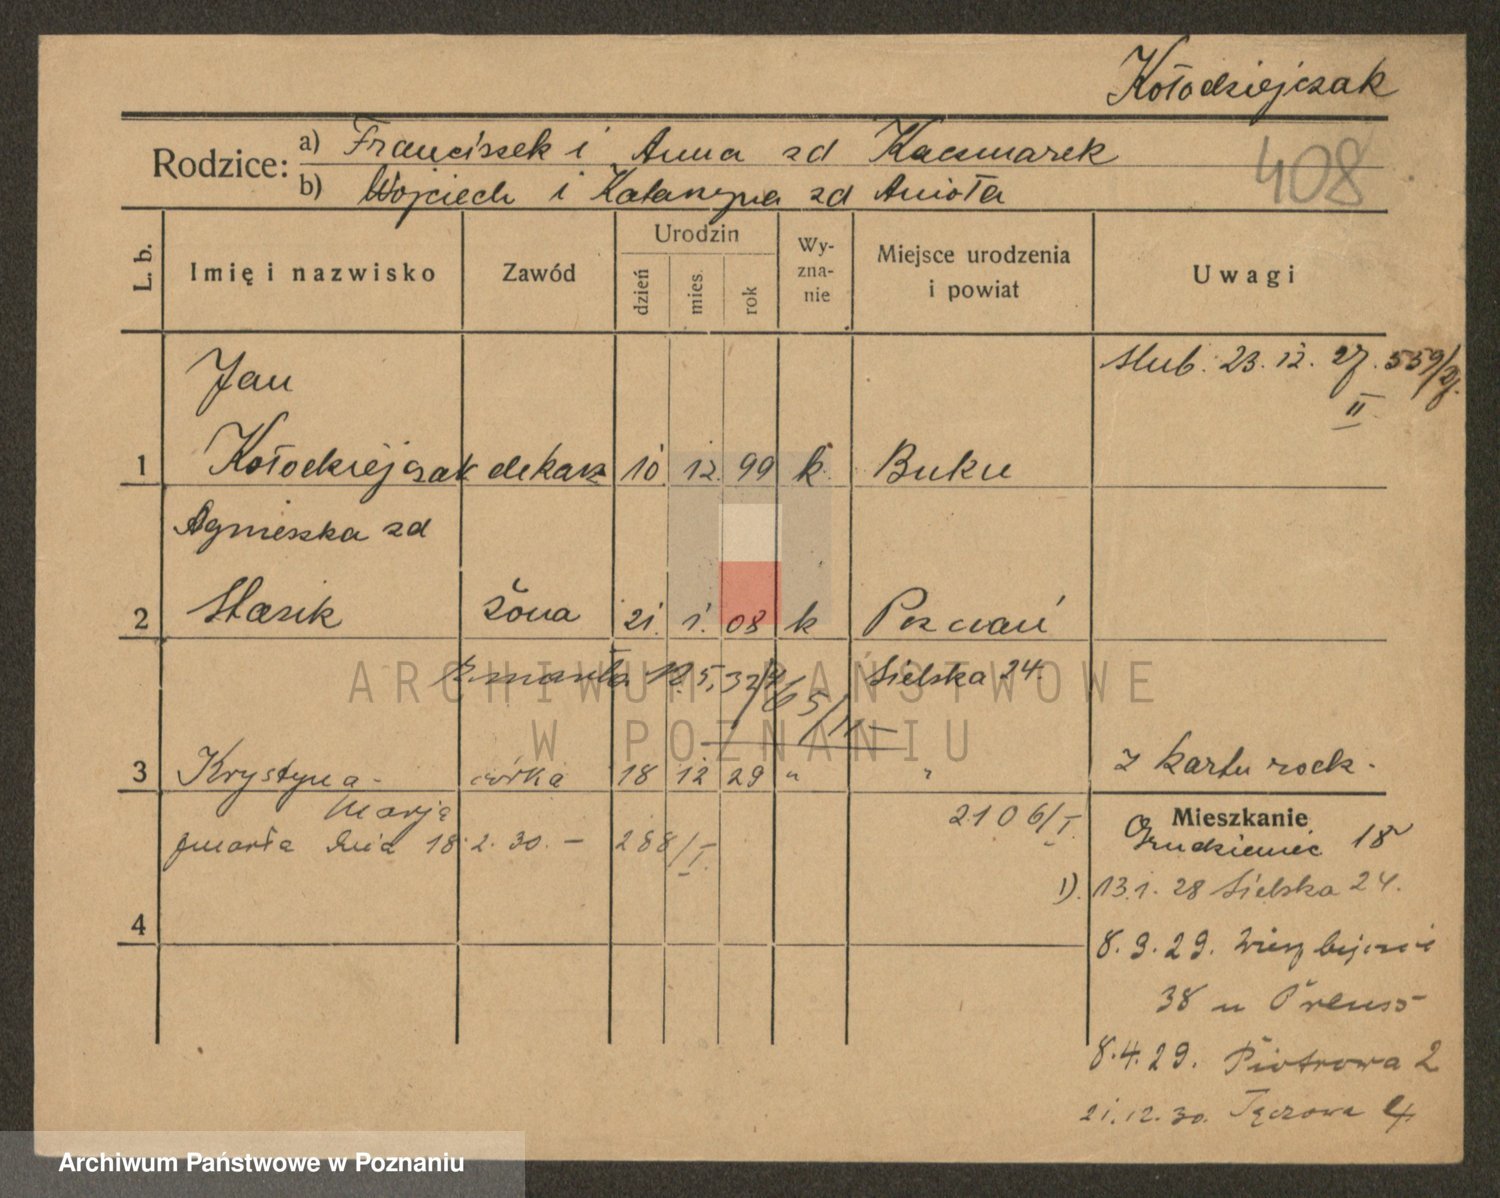 Kołodziejczak
Rodzice: a) Franciszek i Anna zd Kaczmarek
b) Wojciech i Katarzyna zd Anioła
408
L. b.
Imię i nazwisko
Zawód
Urodzin
dzień
mies.
rok
Wy-
zna-
nie
Miejsce urodzenia
i powiat
Uwagi
Jan
ślub. 23. 12. 27. 559/27.
II
1 Kołodziejczak dekarz 10. 12. 99 k. Buku
Agnieszka zd
2 Stasik żona 21. 1. 08 k Poznań
zmarła 5. 32 Sielska 24.
3 Krystyna - córka 18 12 29 " "
z kartu
Marja
zmarła dnia 18. 2. 30. – 288/I.
2106/I.
Mieszkanie
Grudzieniec 18
1). 13.1. 28 Sielska 24.
4
8. 9. 29.
38 u Preuss
8. 4. 29. Piotrowa 2
21. 12. 30. Tęczowa 4
ARCHIWUM PAŃSTWOWE
W POZNANIU
Archiwum Państwowe w Poznaniu